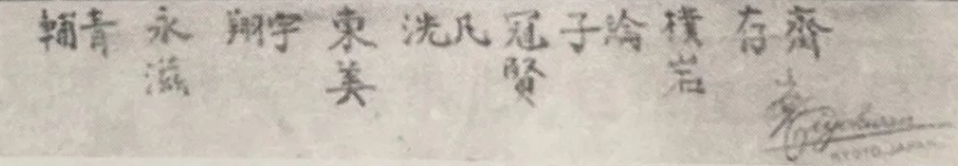 輔青 永滋 翔宇 東美 洗凡 冠賢 子綸 樸岩 存齊
KYOTO, JAPAN.